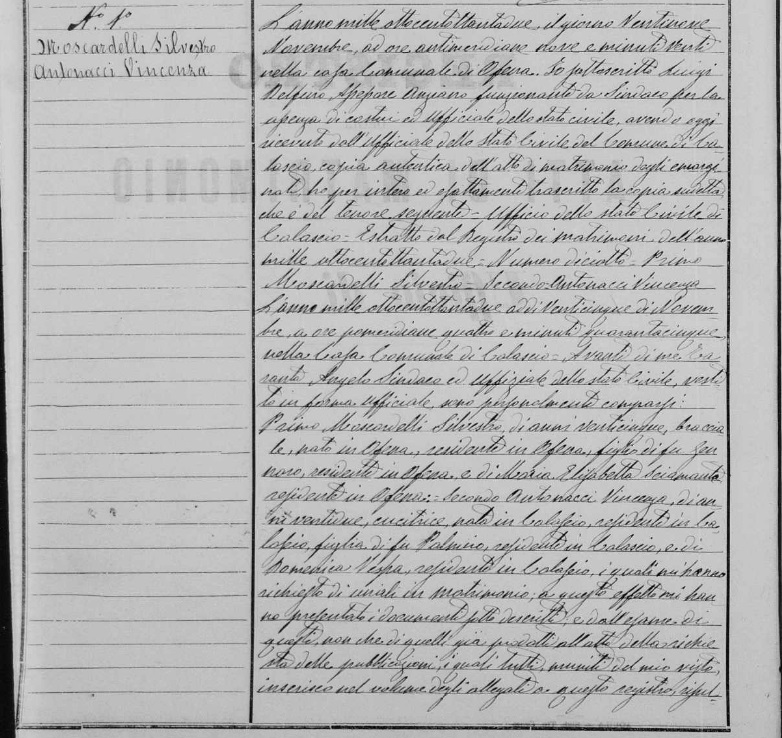 N.° 1°
Moscardelli Silvestro
Antonacci Vincenza
L'anno mille ottocentottantadue, il giorno Ventinove
Novembre, ad ore antimeridiane nove e minuti venti
nella casa Comunale di Ofena. Io sottoscritto Luigi
Assessore Anziano funzionante da Sindaco per la
assenza di costui ed Uffiziale dello stato civile, avendo oggi
ricevuto dall'Uffiziale dello Stato Civile del Comune di Ca
lascio, copia autentica dell'atto di matrimonio degli emargi
nati, ho per intero ed esattamente trascritto la copia suddetta
che è del tenore seguente = Ufficio dello stato Civile di
Calascio = Estratto dal Registro dei matrimoni dell'anno
mille ottocentottantadue = Numero diciotto = Primo
Moscardelli Silvestro = Secondo Antonacci Vincenza
L'anno mille ottocentottantadue addì Venticinque di Novem
bre, a ore pomeridiane quattro e minuti quarantacinque
nella Casa Comunale di Calascio = Avanti di me
Angelo Sindaco ed Uffiziale dello stato Civile, vesti
to in forma Ufficiale, sono personalmente comparsi:
Primo Moscardelli Silvestro, di anni venticinque, braccia
le, nato in Ofena, residente in Ofena, figlio di fu Gen
naro, residente in Ofena, e di Maria Elisabetta Sciamanta
residente in Ofena; = Secondo Antonacci Vincenza, di an
ni ventidue, cucitrice, nata in Calascio, residente in Ca
lascio, figlia di fu Palmino, residente in Calascio, e di
Domenica Vespa, residente in Calascio, i quali mi hanno
richiesto di unirli in matrimonio; a questo effetto mi han
no presentato i documenti sotto descritti; e dall'esame di
questi, non che di quelli già prodotti all'atto della richie
sta delle pubblicazioni, i quali tutti, muniti del mio visto,
inserisco nel volume degli allegati a questo registro, risul-